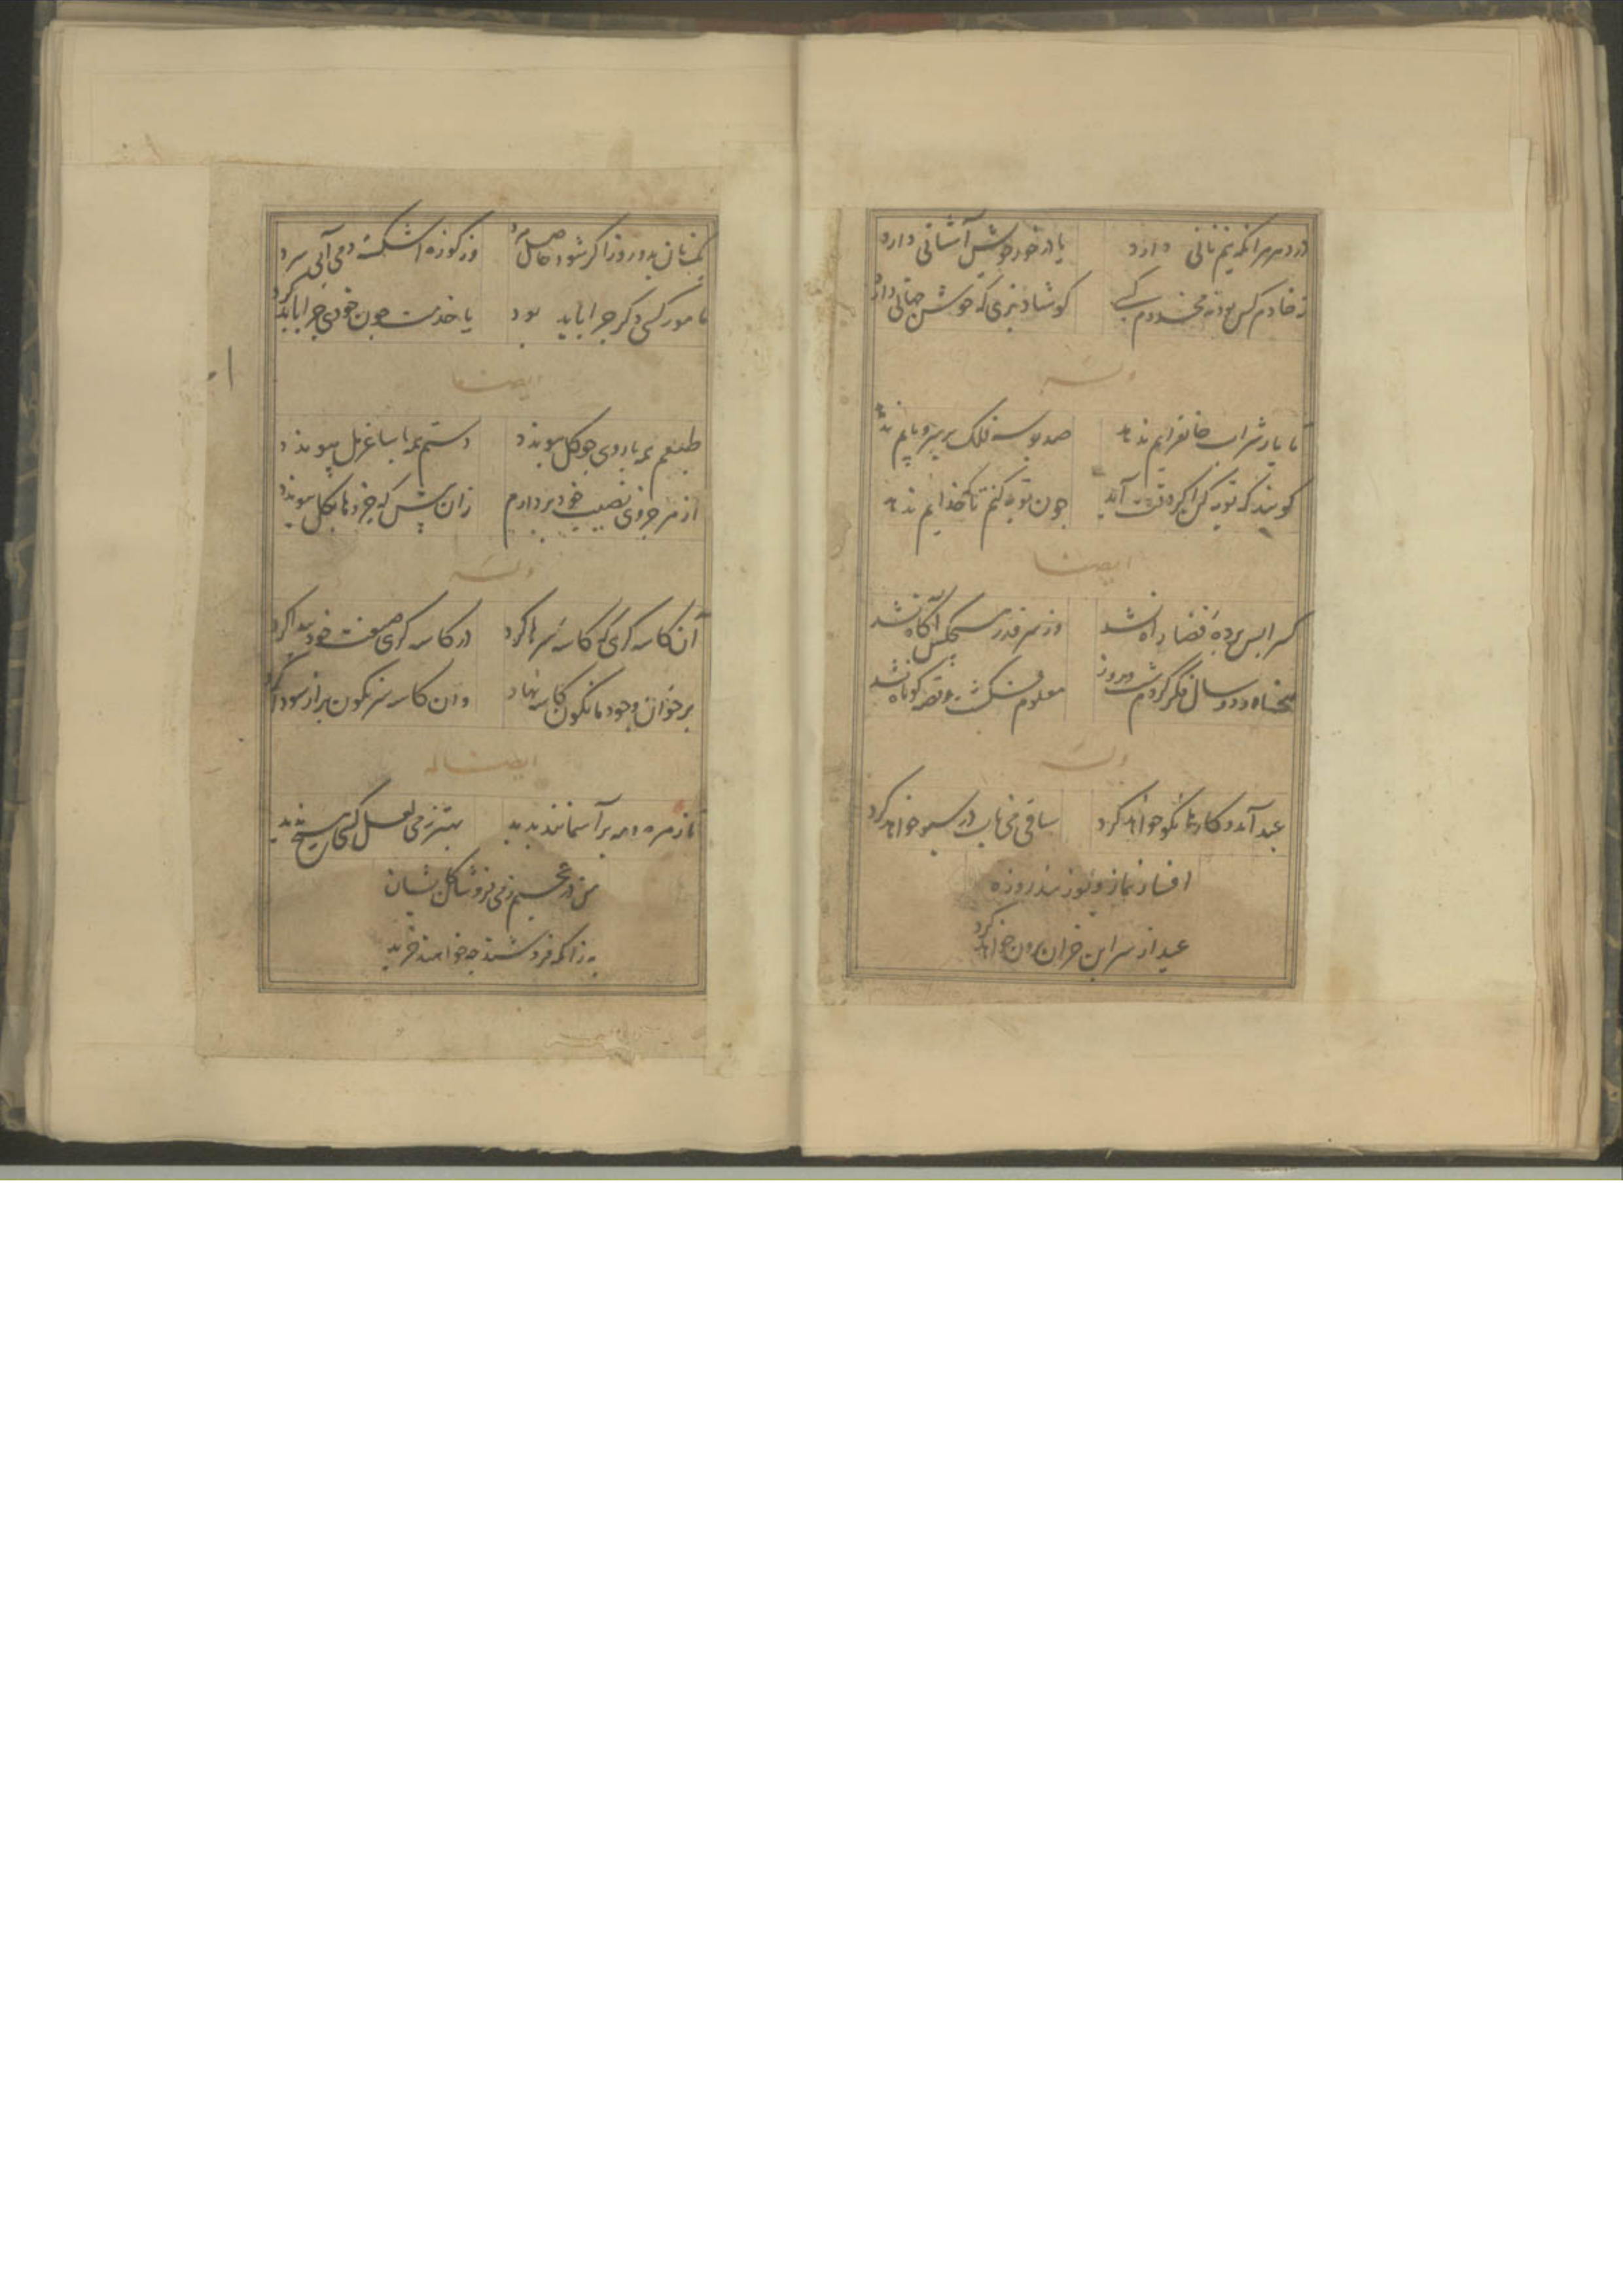 در دهر هر آنکه نیم نانی دارد یا در خور خویش آشیانی دارد
نه خادم کس بود نه مخدوم کسی کو شاد بزی که خوش جهانی دارد
وله
تا یار شراب جانفزایم ندهد صد بوسه فلک بر سر و پایم ندهد
کویند که توبه کن اکر وقت آید چون توبه کنم تا که خدایم ندهد
ایضا
کس را پس پرده قضا راه نشد وز سر قدر هیچکس آکاه نشد
هفتاد و دو سال فکر کردم شب و روز معلوم نکشت و قصه کوتاه نشد
وله
عید آمد و کارها نکو خواهد کرد ساقی می ناب در سبو خواهد کرد
افسار نماز و پوزبند روزه
عید از سر این خران برون خواهد کرد
یک نان بدو روز اکر شود حاصل مرد وز کوزه اشکسته دمی آبی سرد
مامور کسی دکر چرا باید بود یا خدمت چون خودی چرا باید کرد
ایضا
طبعم همه با روی چو کل پیوندد دستم همه با ساغر مل پیوندد
از هر جزوی نصیب خود بردارم زان پیش که جزوها بکل پیوندد
وله
آن کاسه کری که کاسه سرها کرد در کاسه کری صنعت خود پیدا کرد
بر خوان وجود ما نکون کاسه نهاد وان کاسه سرنکون پر از سودا کرد
ایضا له
تا زهره و مه بر آسمانند پدید بهتر ز می لعل کسی هیچ ندید
من در عجبم ز می فروشان کایشان
به زانکه فروشند چه خواهند خرید